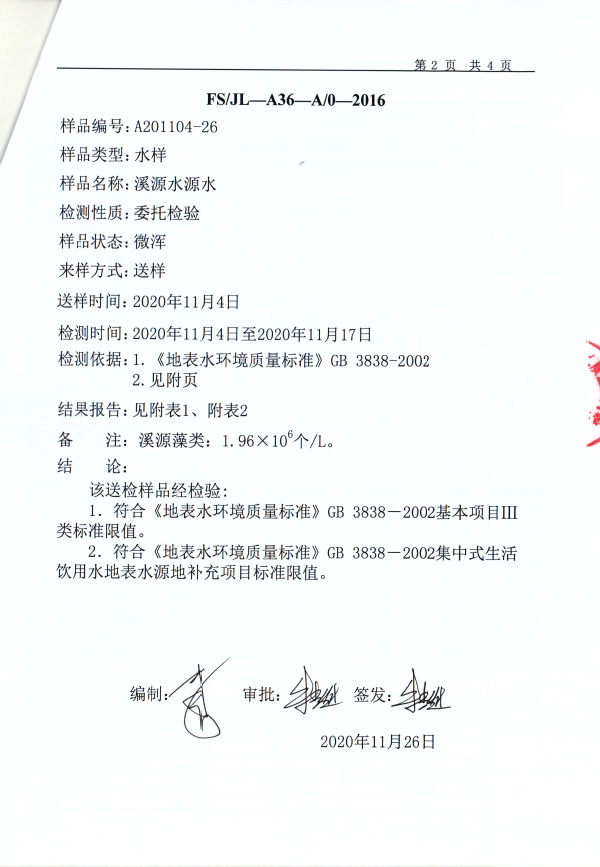 第 2 页 共 4 页
FS/JL—A36—A/0—2016
样品编号: A201104-26
样品类型: 水样
样品名称: 溪源水源水
检测性质: 委托检验
样品状态: 微浑
来样方式: 送样
送样时间: 2020年11月4日
检测时间: 2020年11月4日至2020年11月17日
检测依据: 1.《地表水环境质量标准》GB 3838-2002
2.见附页
结果报告: 见附表1、附表2
备 注: 溪源藻类: 1.96×10⁶个/L。
结 论:
该送检样品经检验:
1．符合《地表水环境质量标准》GB 3838－2002基本项目Ⅲ
类标准限值。
2．符合《地表水环境质量标准》GB 3838－2002集中式生活
饮用水地表水源地补充项目标准限值。
编制: 审批: 签发:
2020年11月26日